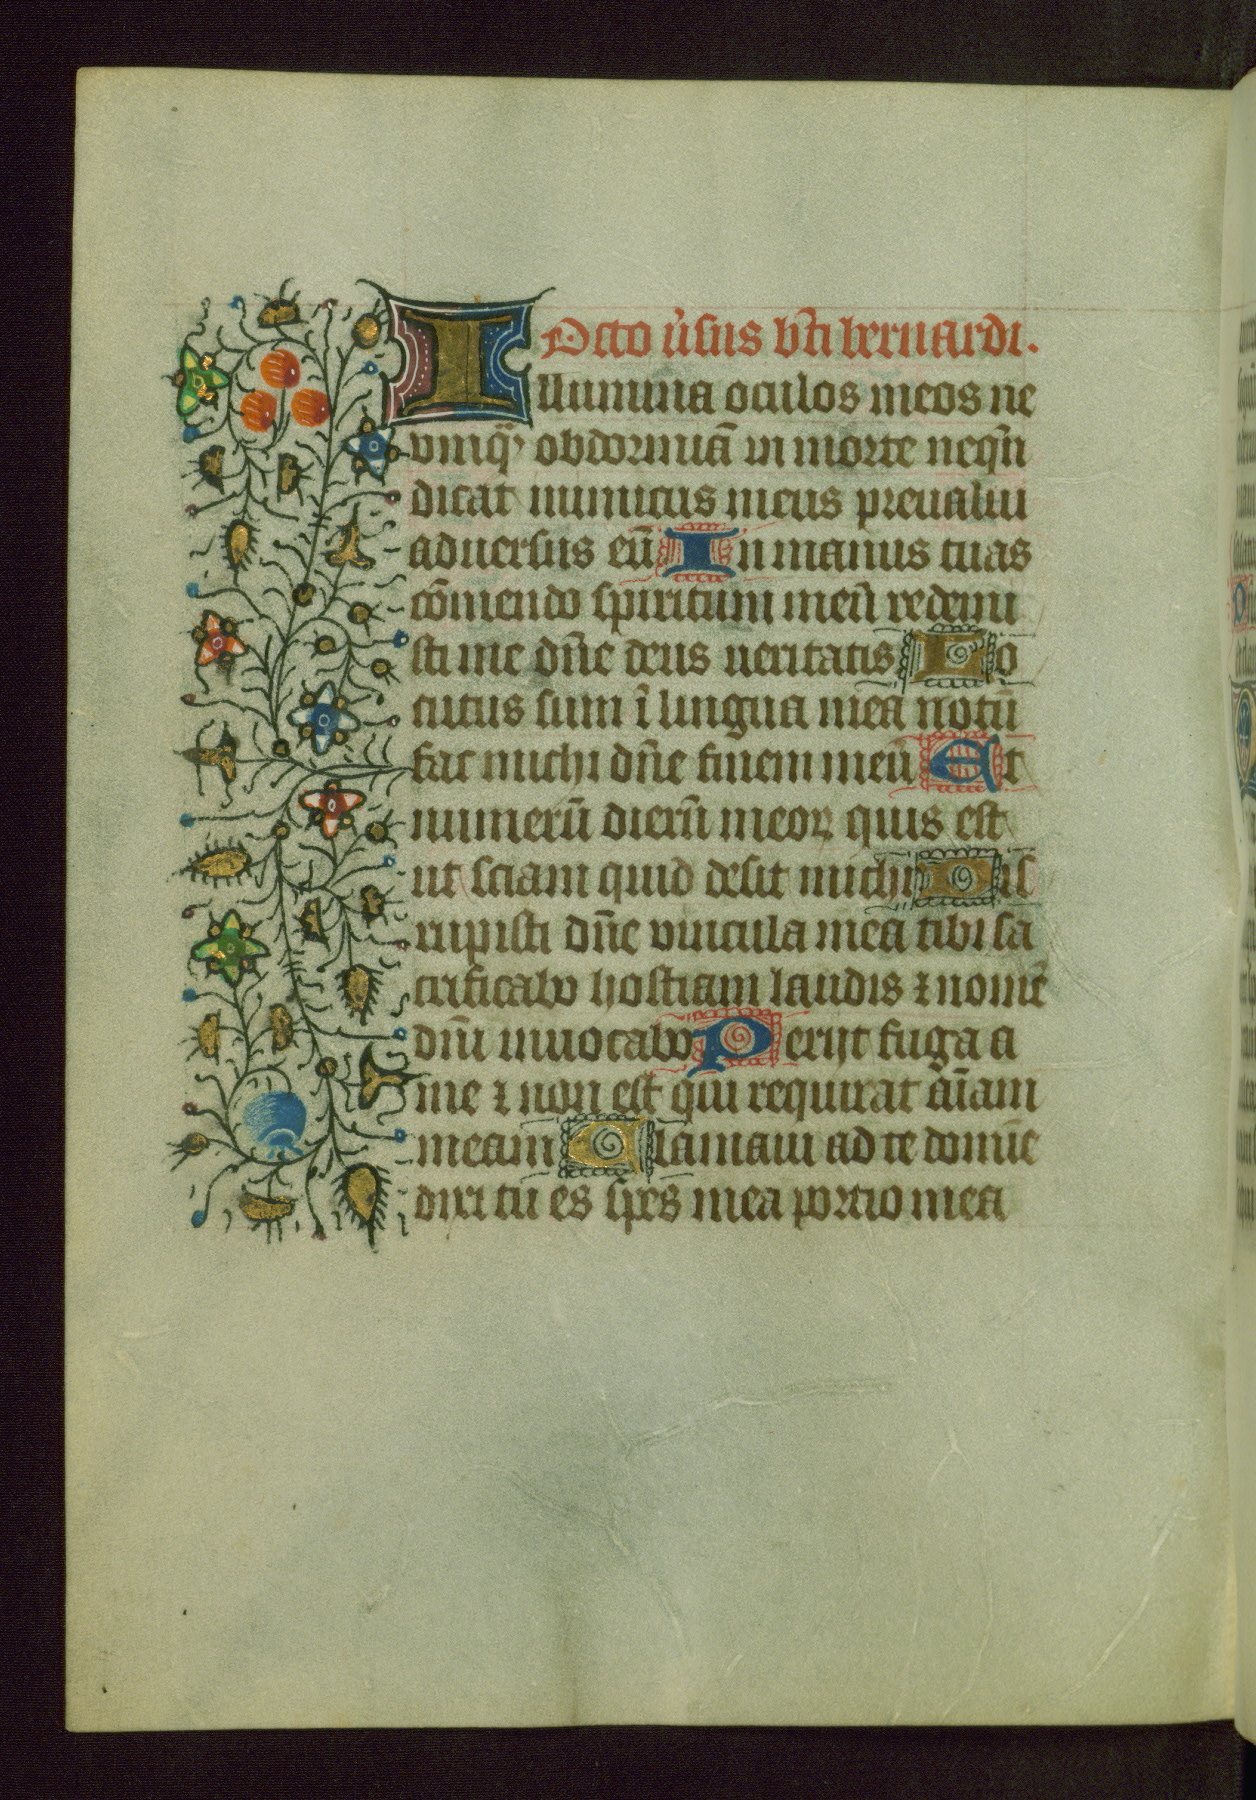 Octo v̓sus bt̄i bernardi.
Illumina oculos meos ne
vmq̄ȝ obdormiā in morte neqn̄
dicat inimicus meus preualui
aduersus eū In manus tuas
cōmendo spiritum meū redemi
sti me dn̄e deus ueritatis Lo
cutus sum ī lingua mea notū
fac michi dn̄e finem meū Et
numerū dierū meoꝝ quis est
ut sciam quid desit michi Dis
rupisti dn̄e vincula mea tibi sa
crificabo hostiam laudis ⁊ nomē
dn̄i inuocabo Perijt fuga a
me ⁊ non est qui requirat āīam
meam Clamaui ad te domīe
dixi tu es spes mea portio mea